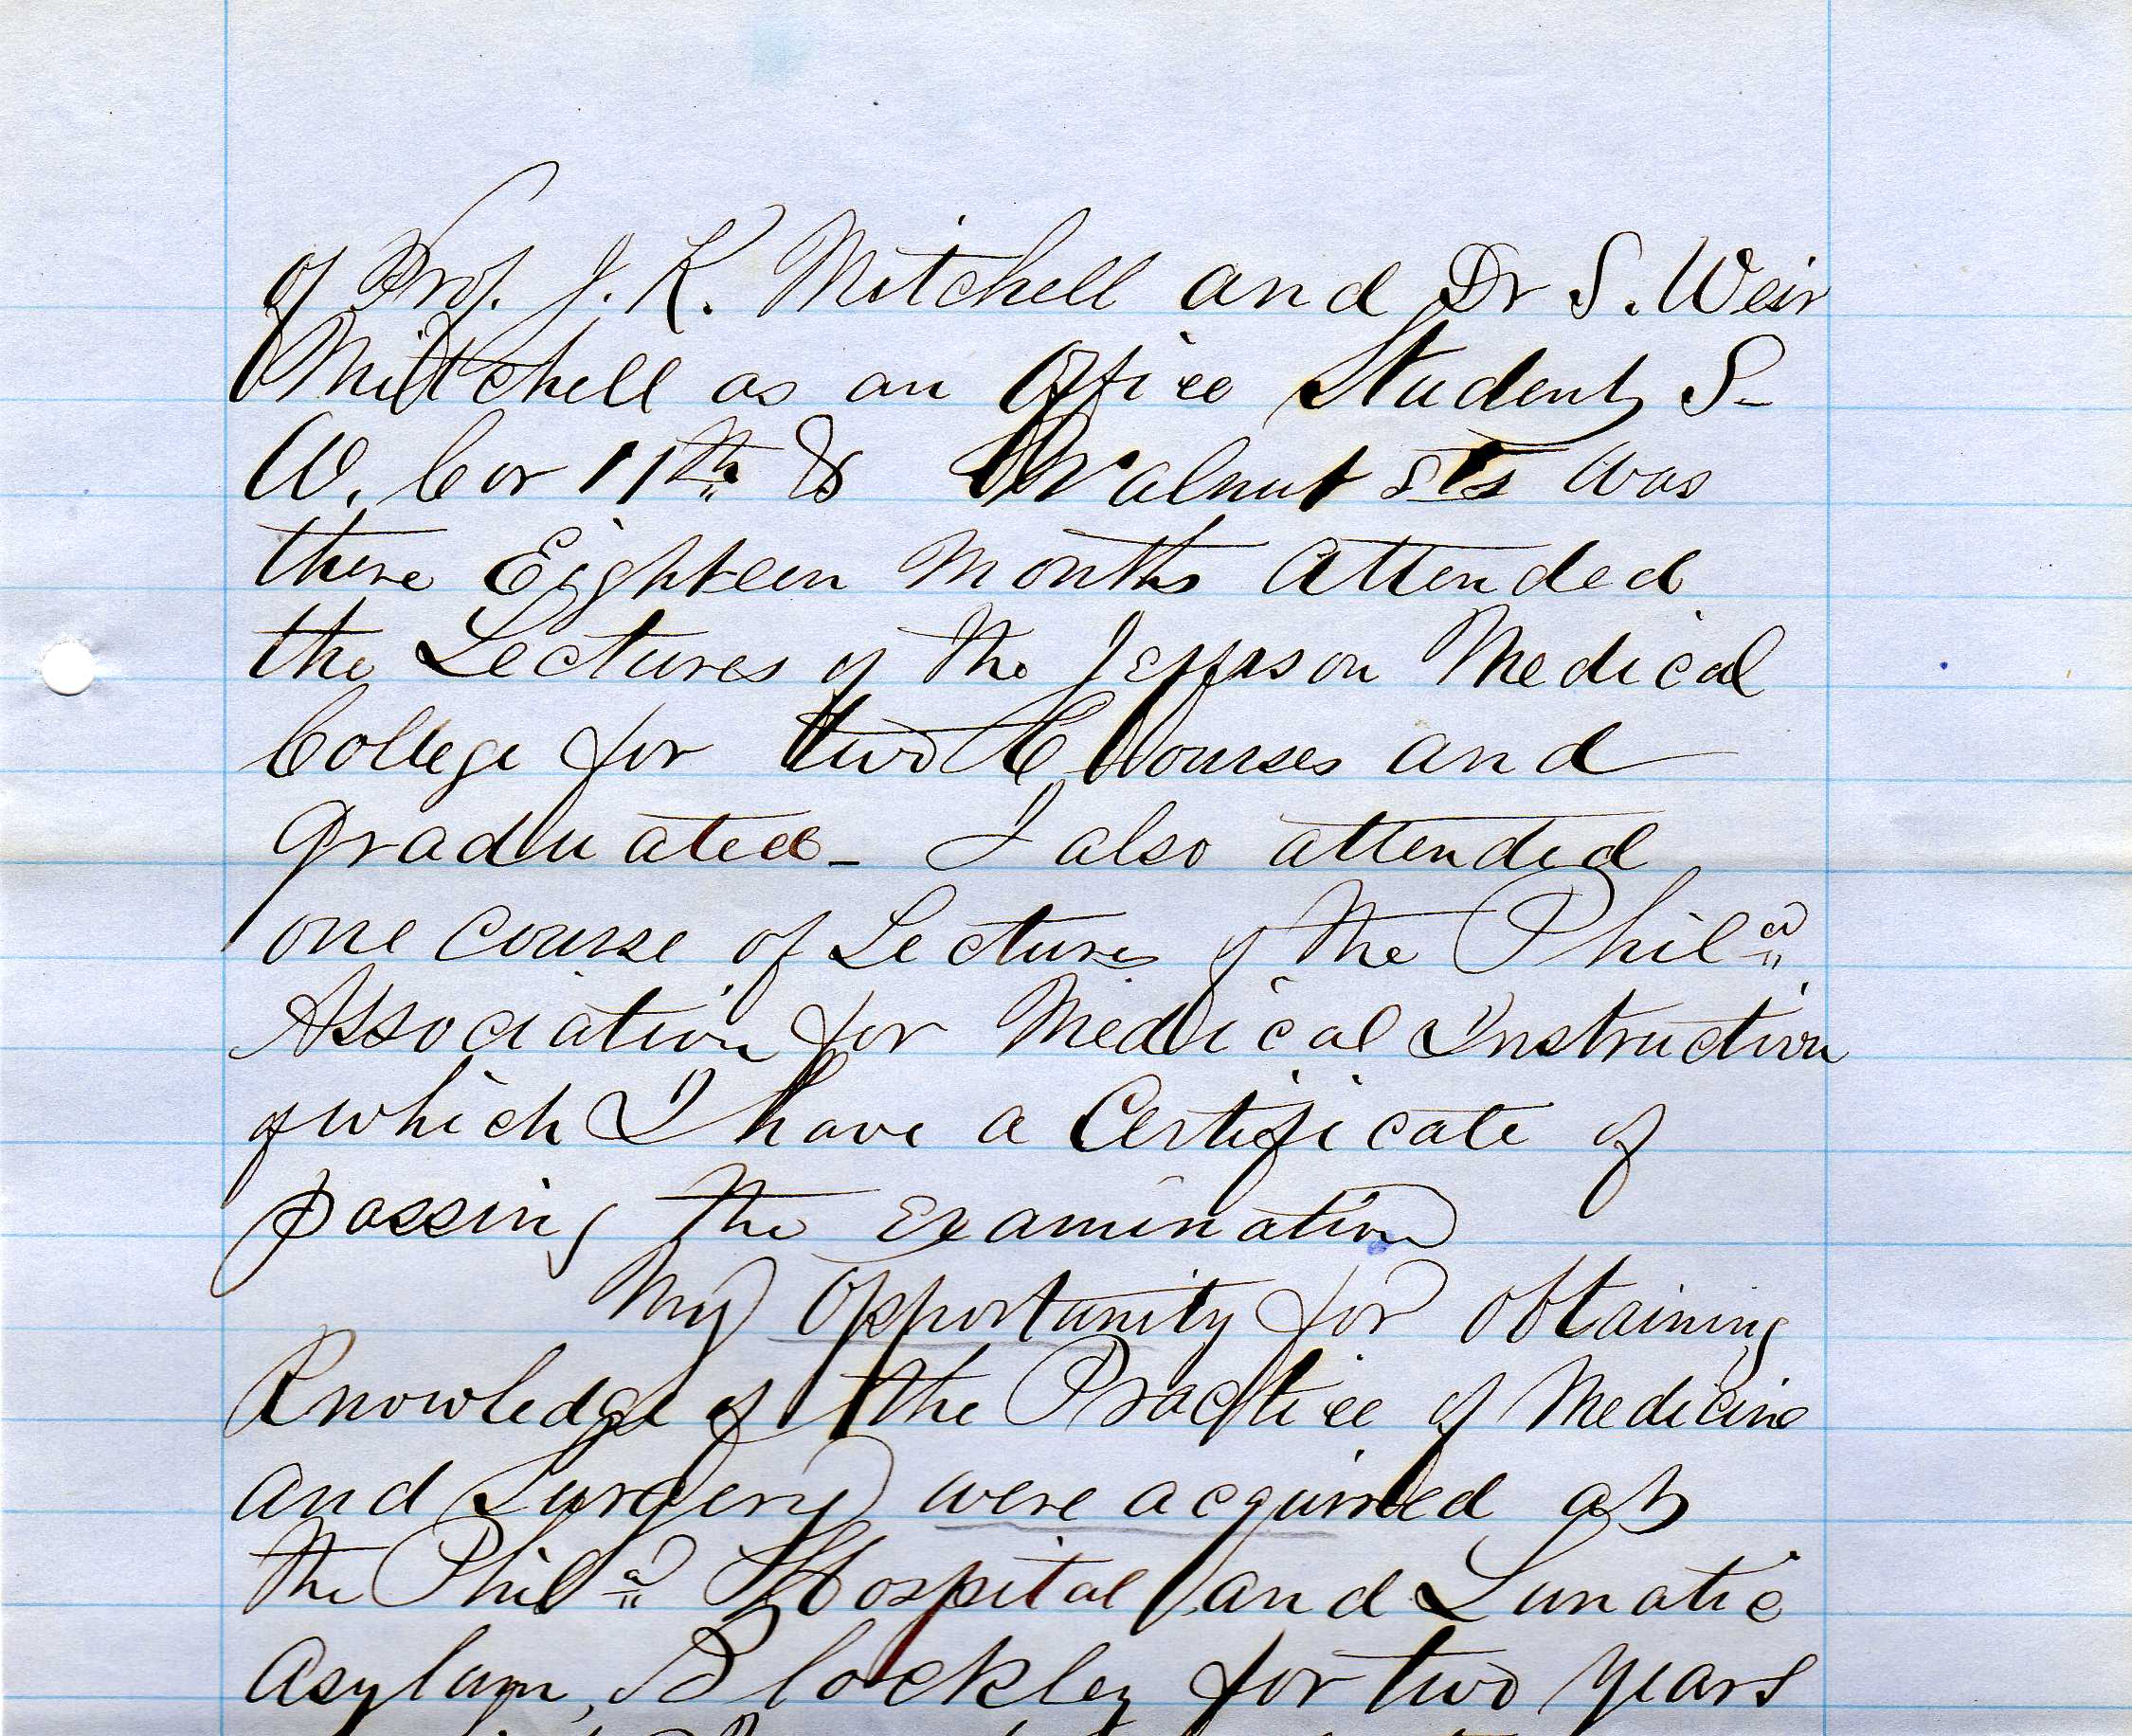 of Prof. J. K. Mitchell and Dr S. Weir
Mitchell as an Office Student, S–
W. Cor 11th & Walnut sts was
there Eighteen Months attended
the Lectures of the Jefferson Medical
College for two Courses and
Graduated– I also attended
one course of Lectures of the Phila
Association for Medical Instruction
of which I have a Certificate of
passing the Examination
My opportunity for obtaining
Knowledge of the Practice of Medicine
and Surgery were acquired at
the Phila Hospital and Lunatic
Asylum, Blockley for two years